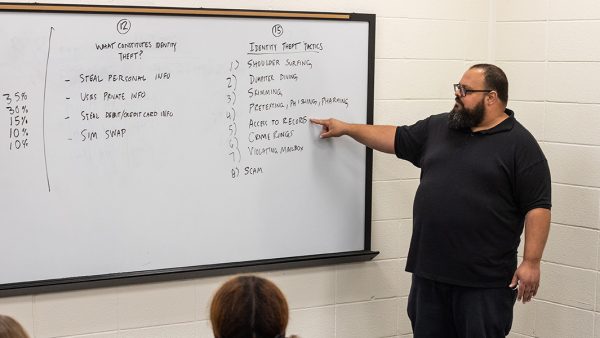 35%
30%
15%
10%
10%
12
WHAT CONSTITUTES IDENTITY
THEFT?
- STEAL PERSONAL INFO
- USES PRIVATE INFO
- STEAL DEBIT/CREDIT CARD INFO
- SIM SWAP
15
IDENTITY THEFT TACTICS
1) SHOULDER SURFING
2) DUMPSTER DIVING
3) SKIMMING
4) PRETEXTING, PHISHING, PHARMING
5) ACCESS TO RECORDS
6) CRIME RINGS
7) VIOLATING MAILBOX
8) SCAM